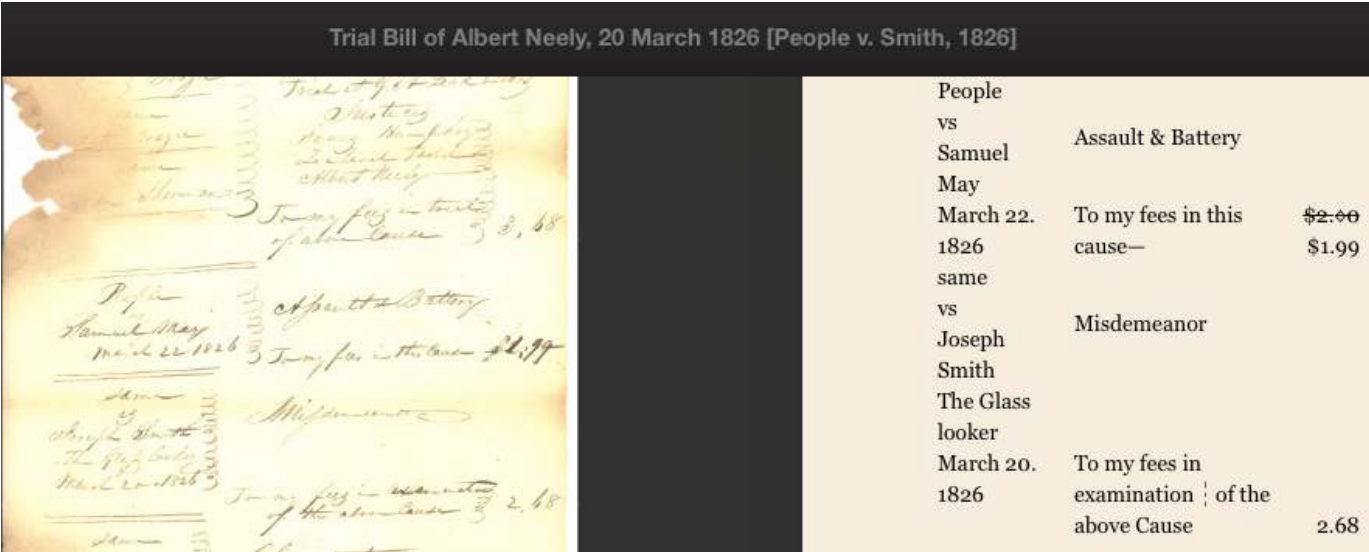 Trial Bill of Albert Neely, 20 March 1826 [People v. Smith, 1826]
same
Justices
Albert Neely
To my fees in trial
of above Cause 3,68
People
Samuel May
March 22 1826
Assault & Battery
To my fees in this Cause $1.99
same
vs
Joseph Smith
The Glass looker
March 20. 1826
Misdemeanor
To my fees in examination
of the above Cause 2.68
same
People
vs
Samuel
May
Assault & Battery
March 22.
1826
To my fees in this
cause—
$2.00
$1.99
same
vs
Joseph
Smith
The Glass
looker
Misdemeanor
March 20.
1826
To my fees in
examination ¦ of the
above Cause
2.68